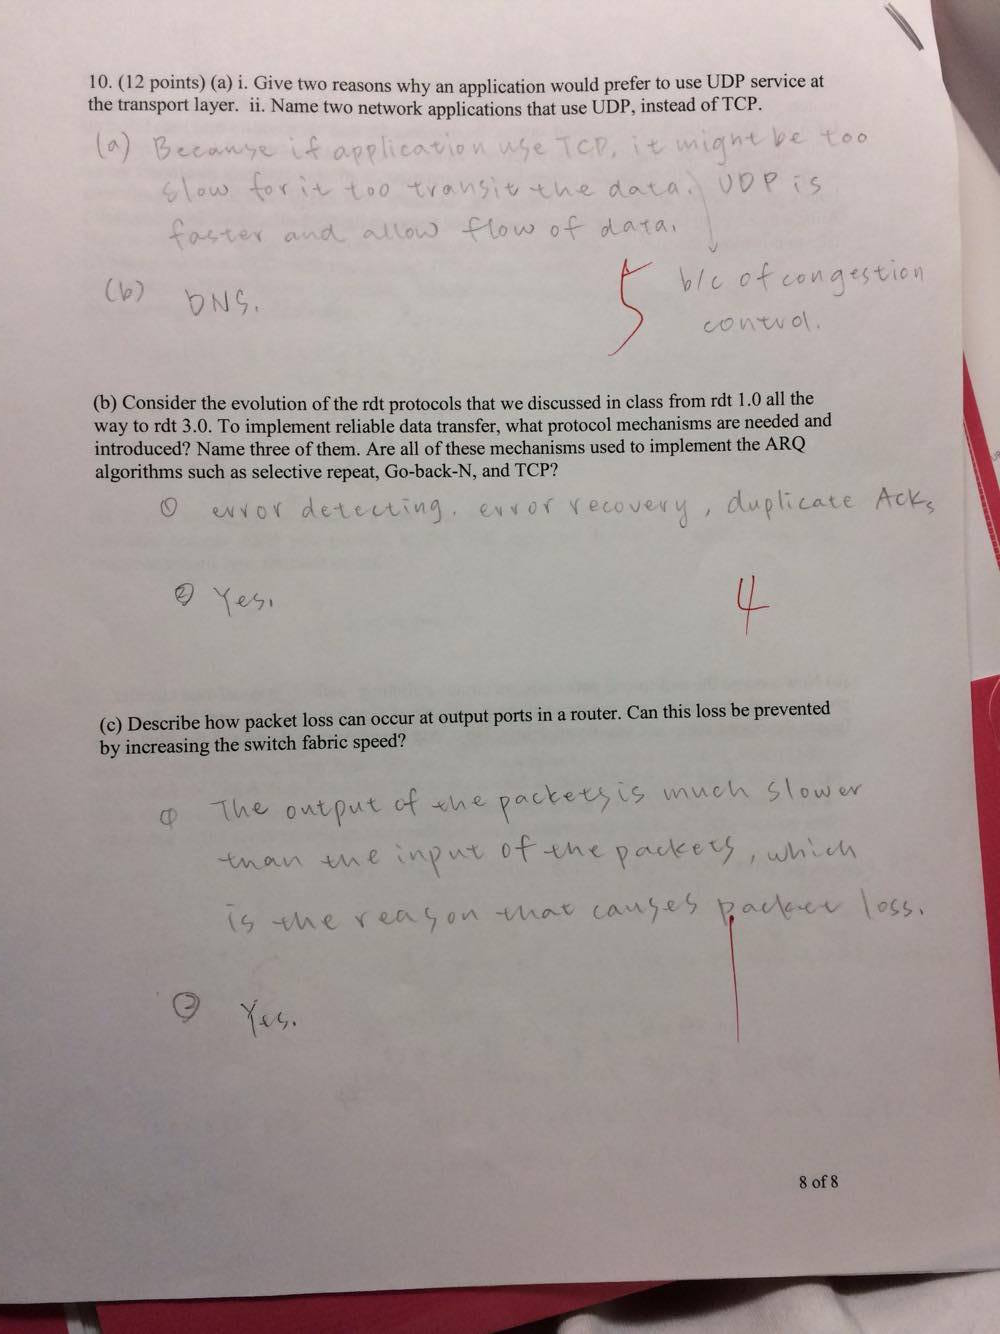 10. (12 points) (a) i. Give two reasons why an application would prefer to use UDP service at
the transport layer. ii. Name two network applications that use UDP, instead of TCP.
(a) Because if application use TCP, it might be too
slow for it too transit the data. UDP is
faster and allow flow of data.
b/c of congestion
control.
5
(b) DNS.
(b) Consider the evolution of the rdt protocols that we discussed in class from rdt 1.0 all the
way to rdt 3.0. To implement reliable data transfer, what protocol mechanisms are needed and
introduced? Name three of them. Are all of these mechanisms used to implement the ARQ
algorithms such as selective repeat, Go-back-N, and TCP?
① error detecting, error recovery, duplicate Acks
② Yes.
4
(c) Describe how packet loss can occur at output ports in a router. Can this loss be prevented
by increasing the switch fabric speed?
① The output of the packets is much slower
than the input of the packets, which
is the reason that causes packet loss.
1
② Yes.
8 of 8